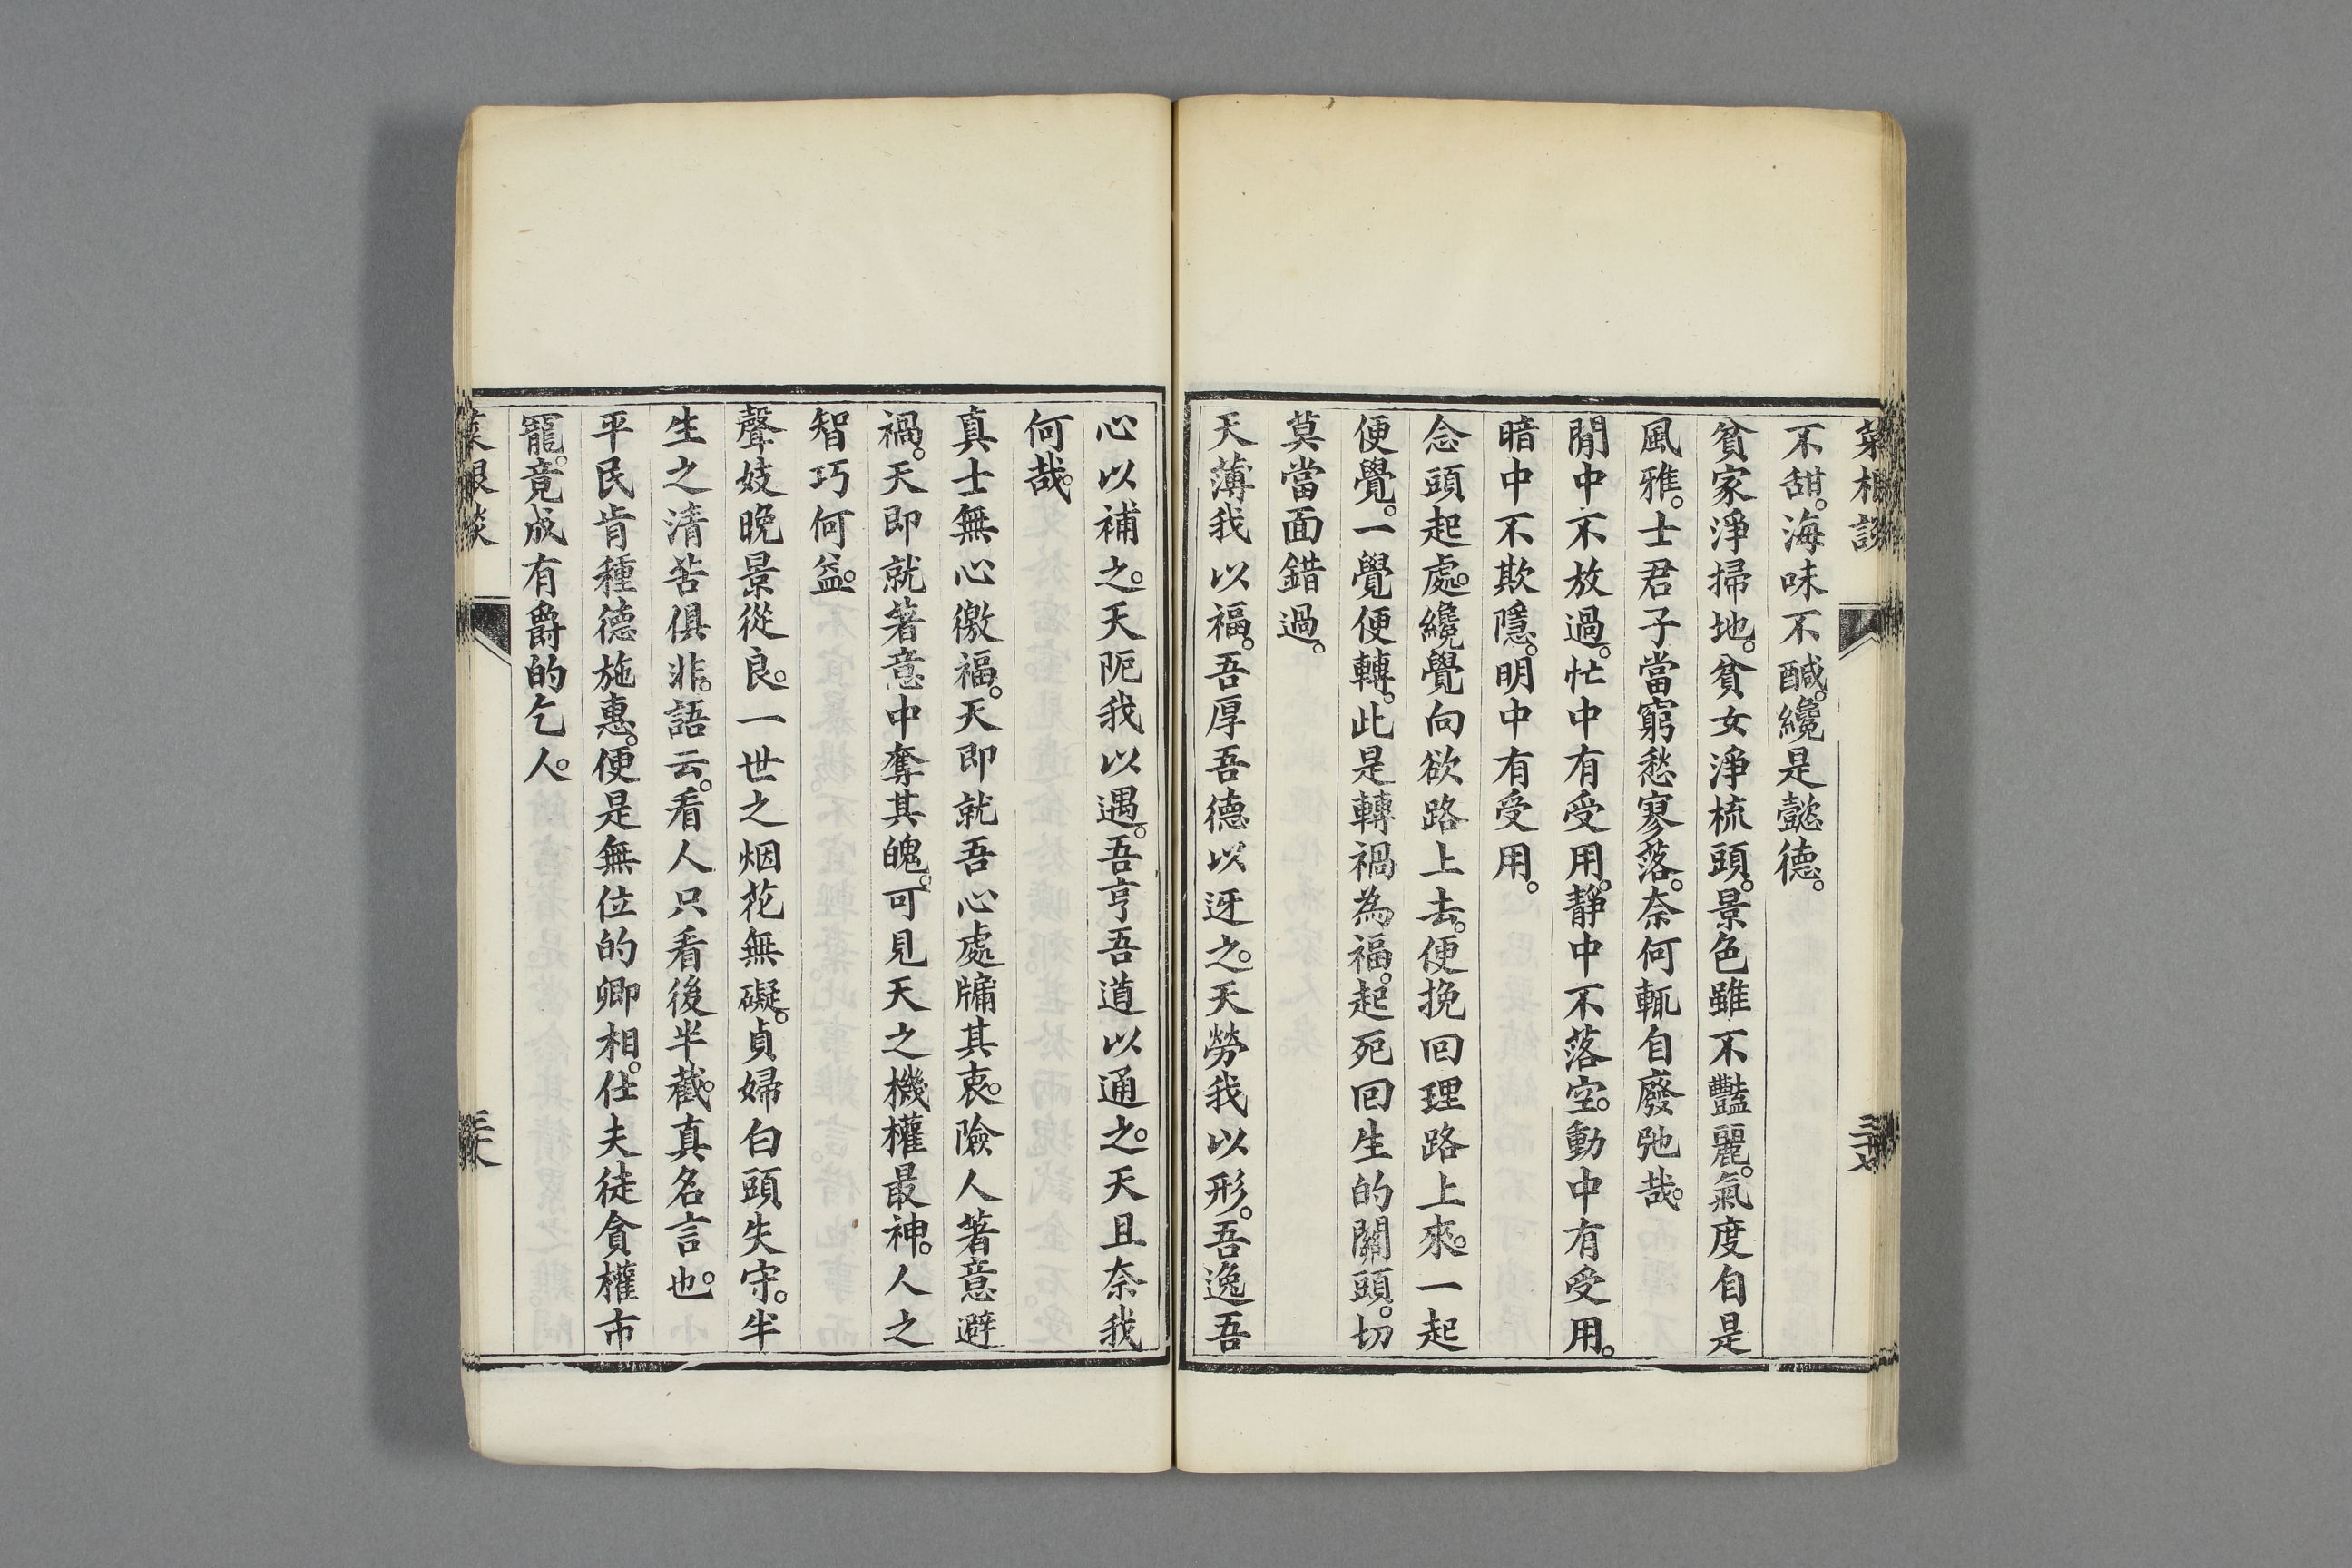 菜根談
三十七
不甜。海味不醎。纔是懿德。
貧家淨掃地。貧女淨梳頭。景色雖不豔麗。氣度自是
風雅。士君子當窮愁寥落。奈何輒自廢弛哉。
閒中不放過。忙中有受用。靜中不落空。動中有受用。
暗中不欺隱。明中有受用。
念頭起處。纔覺向欲路上去。便挽回理路上來。一起
便覺。一覺便轉。此是轉禍為福。起死回生的關頭。切
莫當面錯過。
天薄我以福。吾厚吾德以迓之。天勞我以形。吾逸吾
心以補之。天阨我以遇。吾亨吾道以通之。天且奈我
何哉。
真士無心徼福。天即就吾心處牖其衷。險人著意避
禍。天即就著意中奪其魄。可見天之機權最神。人之
智巧何益。
聲妓晚景從良。一世之烟花無礙。貞婦白頭失守。半
生之清苦俱非。語云。看人只看後半截。真名言也。
平民肯種德施惠。便是無位的卿相。仕夫徒貪權市
寵。竟成有爵的乞人。
菜根談